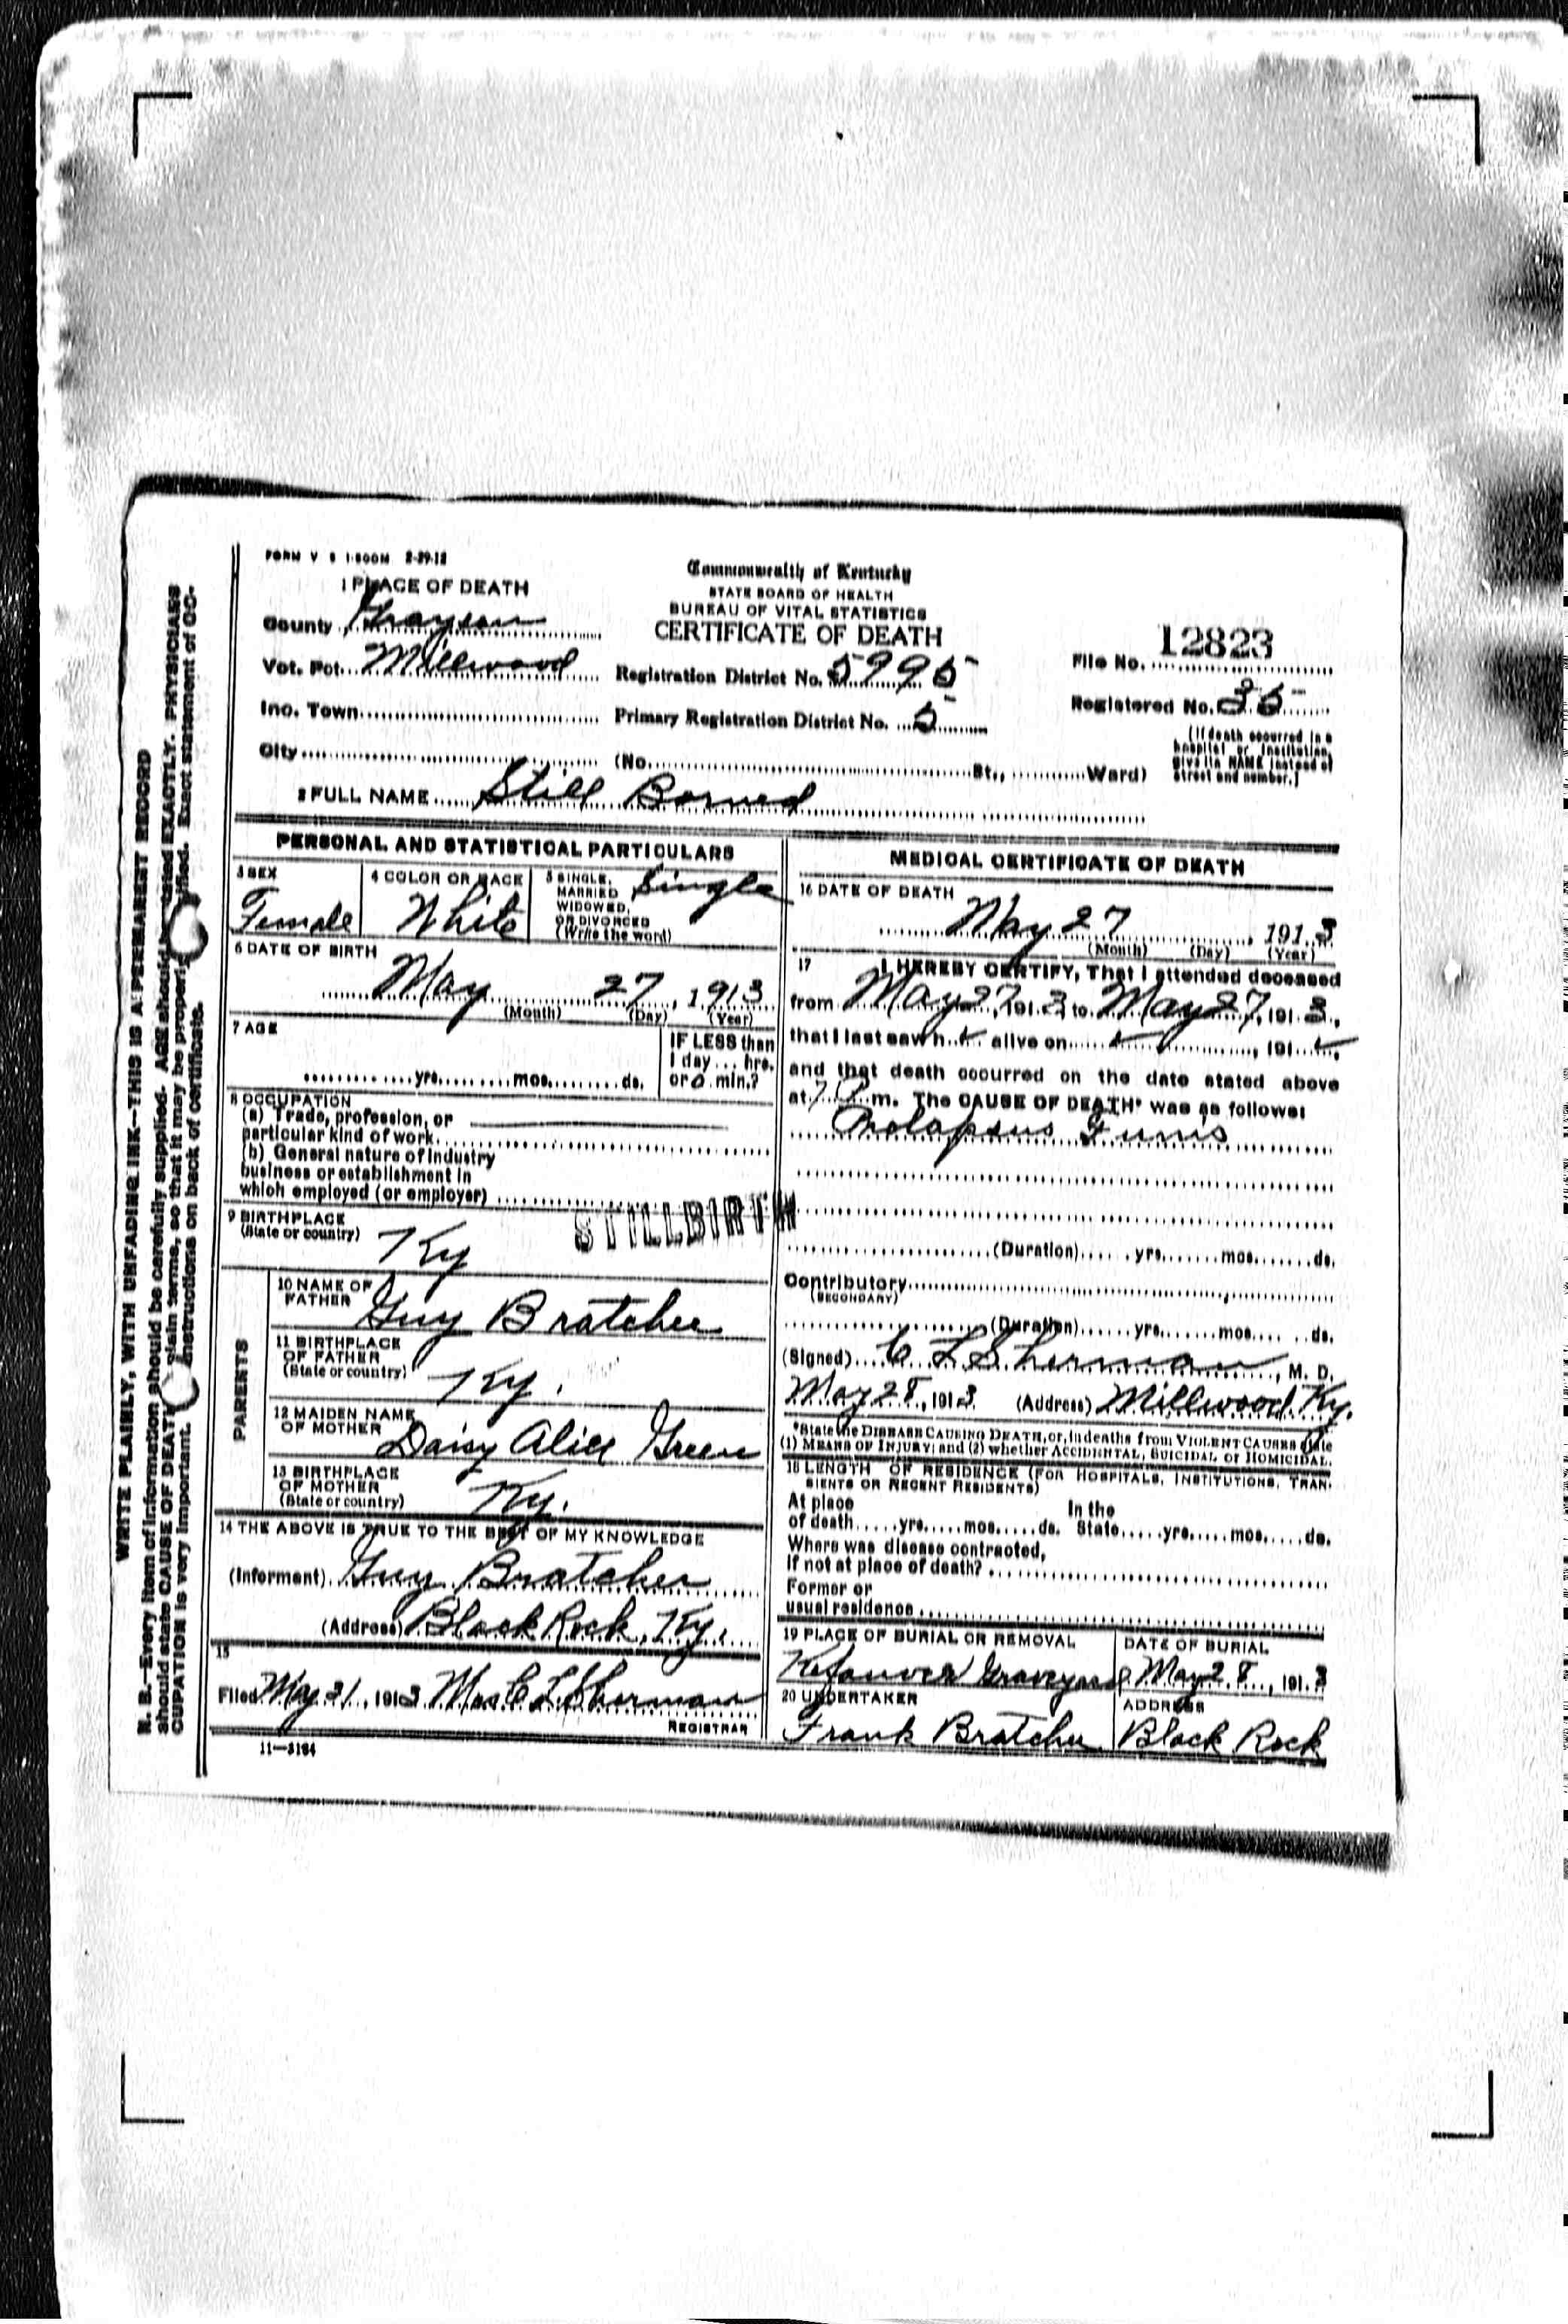 FORM V S 1-500M 2-29-12
1 PLACE OF DEATH
County Grayson
Vot. Pct. Millwood
Inc. Town
City
Commonwealth of Kentucky
STATE BOARD OF HEALTH
BUREAU OF VITAL STATISTICS
CERTIFICATE OF DEATH
Registration District No. 5995
Primary Registration District No. 5
(No. St., Ward)
File No. 12823
Registered No. 35
(If death occurred in a
hospital or institution,
give its NAME instead of
street and number.)
2 FULL NAME Still Borned
PERSONAL AND STATISTICAL PARTICULARS
3 SEX
Female
4 COLOR OR RACE
White
5 SINGLE,
MARRIED
WIDOWED,
OR DIVORCED
(Write the word)
Single
6 DATE OF BIRTH
May 27, 1913
(Month) (Day) (Year)
7 AGE
yrs. mos. ds.
IF LESS than
1 day ... hrs.
or 0 min.?
8 OCCUPATION
(a) Trade, profession, or
particular kind of work
(b) General nature of industry
business or establishment in
which employed (or employer)
9 BIRTHPLACE
(State or country)
Ky
STILLBIRTH
PARENTS
10 NAME OF
FATHER
Guy Bratcher
11 BIRTHPLACE
OF FATHER
(State or country)
Ky.
12 MAIDEN NAME
OF MOTHER
Daisy Alice Green
13 BIRTHPLACE
OF MOTHER
(State or country)
Ky.
14 THE ABOVE IS TRUE TO THE BEST OF MY KNOWLEDGE
(Informant) Guy Bratcher
(Address) Black Rock, Ky.
15
Filed May 31, 1913 Mrs C L Sherman
REGISTRAR
11—3184
MEDICAL CERTIFICATE OF DEATH
16 DATE OF DEATH
May 27, 1913
(Month) (Day) (Year)
17 I HEREBY CERTIFY, That I attended deceased
from May 27, 1913, to May 27, 1913,
that I last saw h alive on , 191 ,
and that death occurred on the date stated above
at 7 P. m. The CAUSE OF DEATH* was as follows:
Prolapsus Funis
(Duration) yrs. mos. ds.
Contributory
(SECONDARY)
(Duration) yrs. mos. ds.
(Signed) C L Sherman, M. D.
May 28, 1913 (Address) Millwood Ky.
*State the DISEASE CAUSING DEATH, or, in deaths from VIOLENT CAUSES state
(1) MEANS OF INJURY; and (2) whether ACCIDENTAL, SUICIDAL or HOMICIDAL.
18 LENGTH OF RESIDENCE (FOR HOSPITALS, INSTITUTIONS, TRAN-
SIENTS OR RECENT RESIDENTS)
At place
of death yrs. mos. ds.
In the
State yrs. mos. ds.
Where was disease contracted,
If not at place of death?
Former or
usual residence
19 PLACE OF BURIAL OR REMOVAL
Graveyard
DATE OF BURIAL
May 28, 1913
20 UNDERTAKER
Frank Bratcher
ADDRESS
Black Rock
WRITE PLAINLY, WITH UNFADING INK—THIS IS A PERMANENT RECORD
N. B.—Every item of information should be carefully supplied. AGE should be stated EXACTLY. PHYSICIANS
should state CAUSE OF DEATH plain terms, so that it may be properly classified. Exact statement of OC-
CUPATION is very important. Instructions on back of certificate.